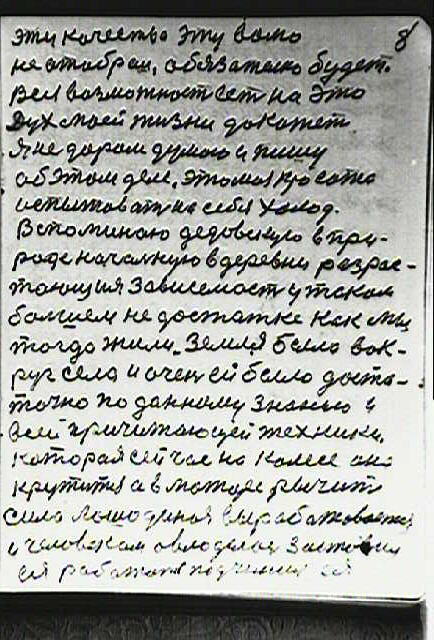 8
эти качества эту волю
не отобрал, обязателно будет.
Вся возможност ест на это
Дух моей жизни докажет
Я не даром думаю и пишу
об этом деле, это моя красота
испытоват на себя холод.
Вспоминаю дедовскую в при-
роде началную в деревни разрас-
тающия зависемост у таком
болшем не достатке как мы
тогда жили. Земля было вок-
руг села и очен ей было доста-
точно по данному знанию и
всей причитающей техники.
которая сейчас на колесе она
крутится а в моторе рычит
сила лошадиная вырабатовается
и человеком овладелая заставил
ей работат подчинил